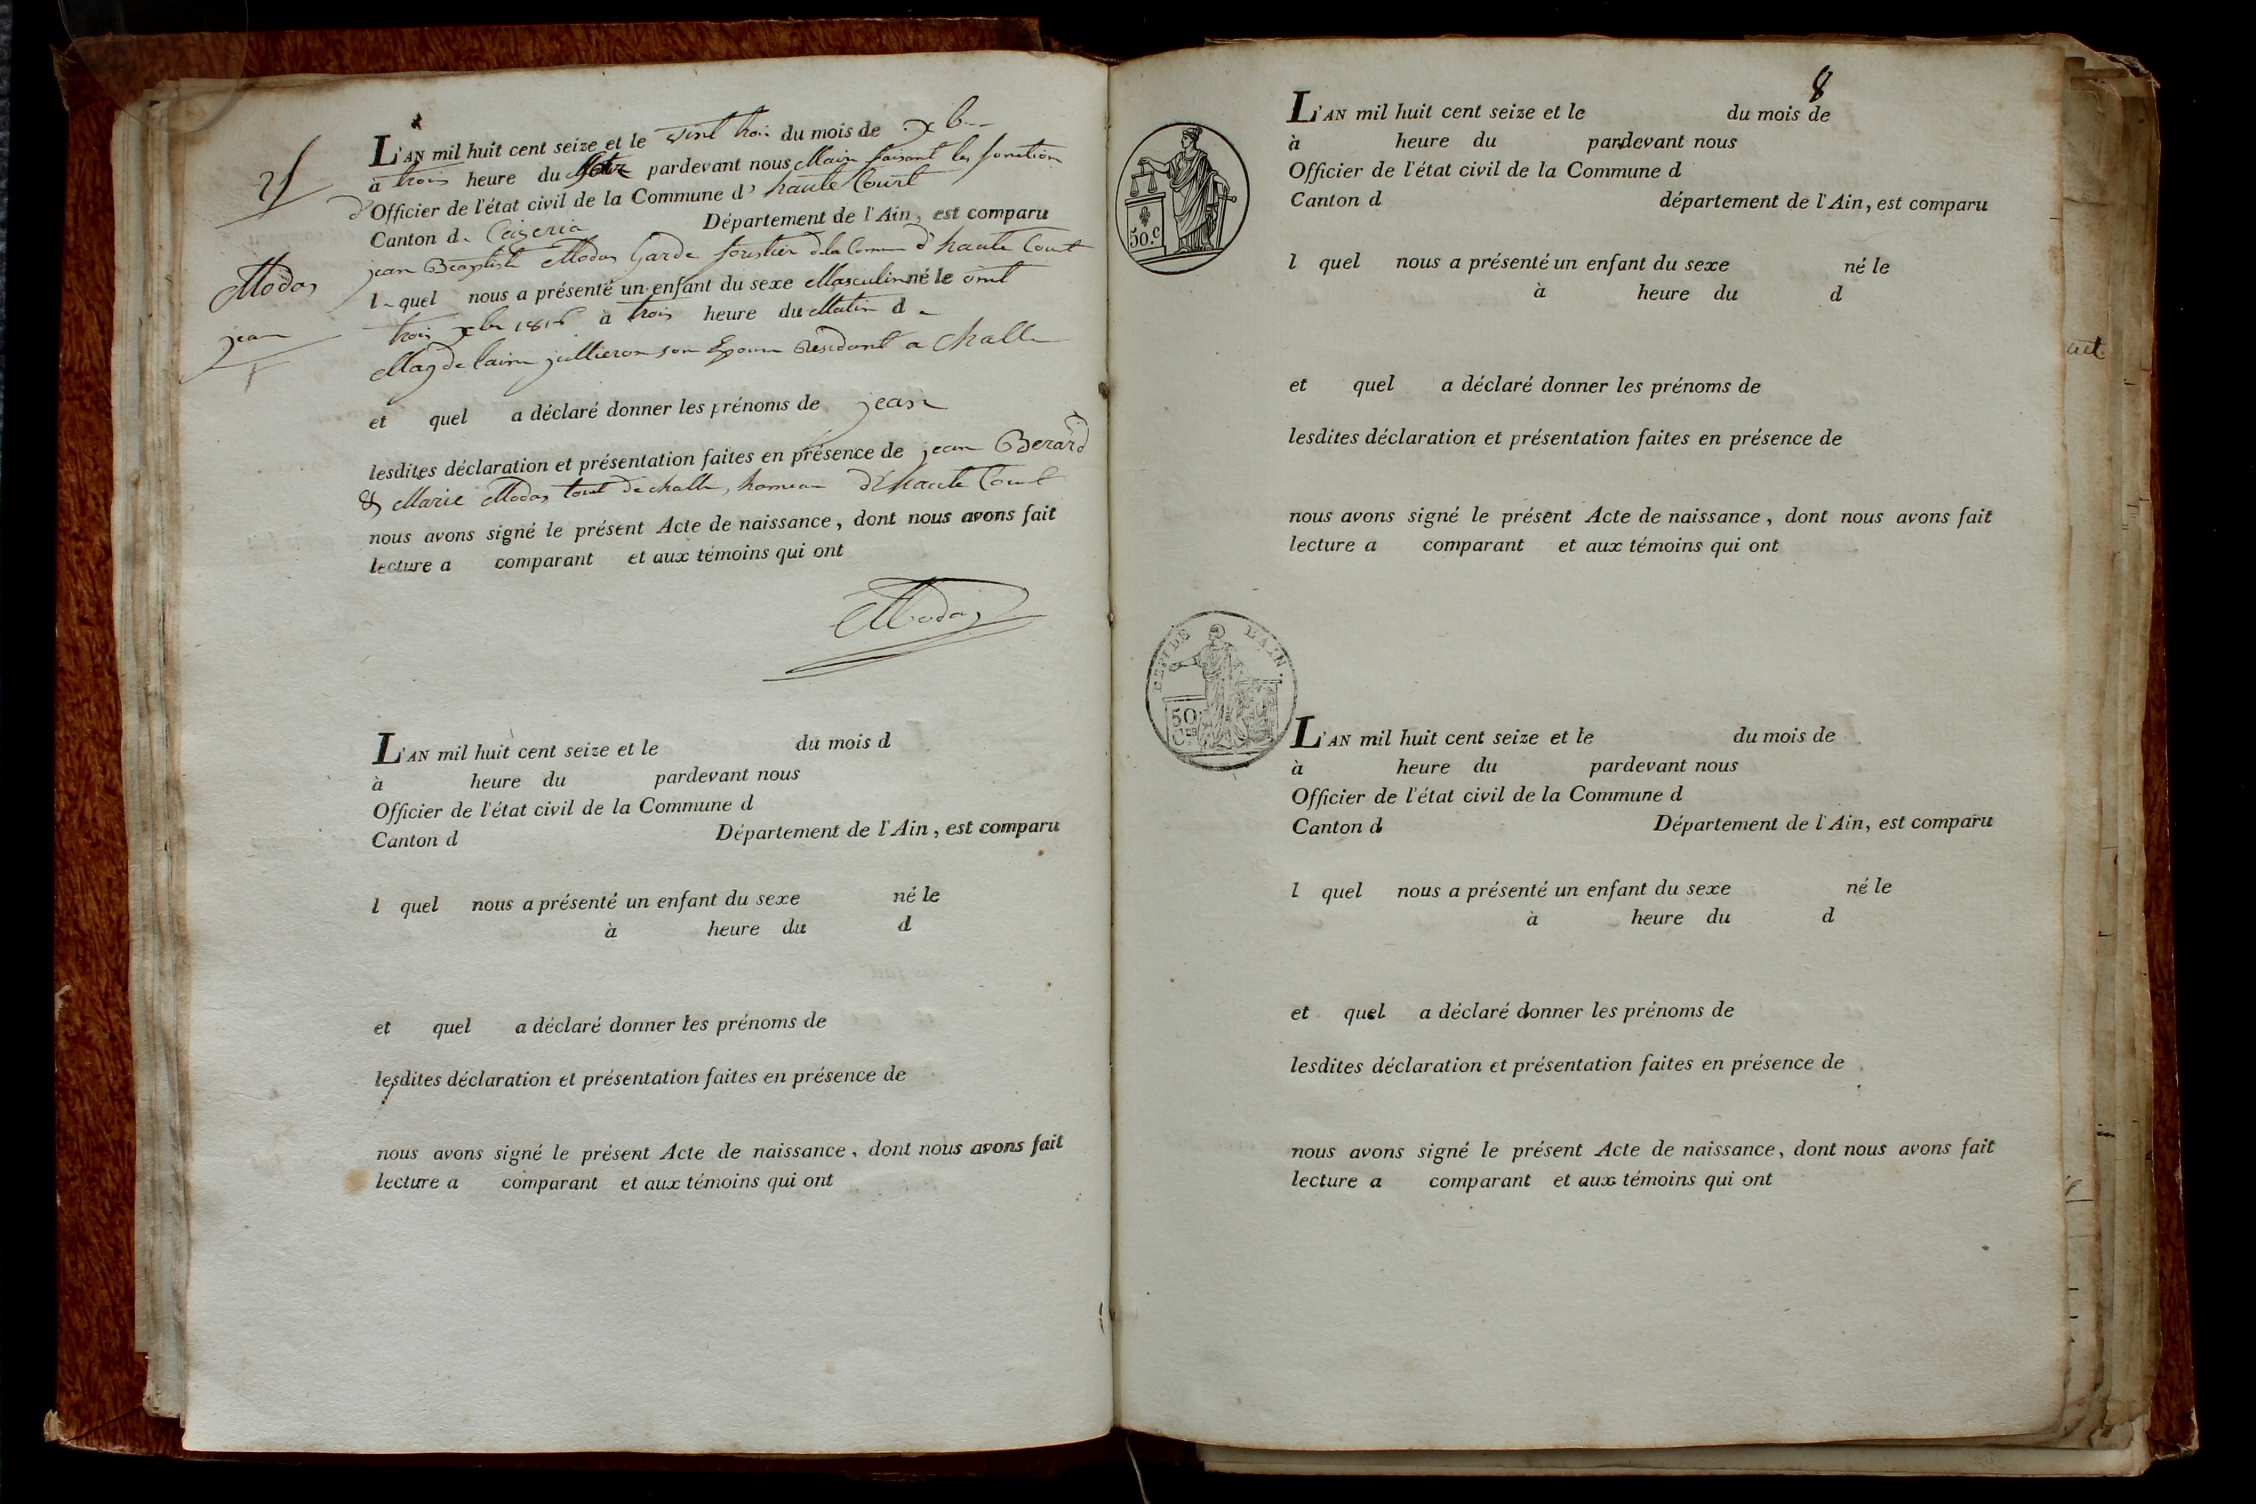 L'AN mil huit cent seize et le vint trois du mois de xbre
à trois heure du pardevant nous Maire faisant les fonction
d'Officier de l'état civil de la Commune d'haute Court
Canton de Ceizeria Département de l'Ain, est comparu
jean Baptiste Modas Garde forestier de la Commune d'haute Court
l quel nous a présenté un enfant du sexe Masculin né le vint
trois xbre 1816 à trois heure du Matin d
Magdelaine jullieron son Epouse Residant a Challe
et quel a déclaré donner les prénoms de jean
lesdites déclaration et présentation faites en présence de jean Berard
& Marie Modas tout de challe, hameau d'haute Court
nous avons signé le présent Acte de naissance, dont nous avons fait
lecture a comparant et aux témoins qui ont
Modas
Modas
jean
L'AN mil huit cent seize et le du mois d
à heure du pardevant nous
Officier de l'état civil de la Commune d
Canton d Département de l'Ain, est comparu
l quel nous a présenté un enfant du sexe né le
à heure du d
et quel a déclaré donner les prénoms de
lesdites déclaration et présentation faites en présence de
nous avons signé le présent Acte de naissance, dont nous avons fait
lecture a comparant et aux témoins qui ont
8
L'AN mil huit cent seize et le du mois de
à heure du pardevant nous
Officier de l'état civil de la Commune d
Canton d département de l'Ain, est comparu
50.c
l quel nous a présenté un enfant du sexe né le
à heure du d
et quel a déclaré donner les prénoms de
lesdites déclaration et présentation faites en présence de
nous avons signé le présent Acte de naissance, dont nous avons fait
lecture a comparant et aux témoins qui ont
DEPT DE L'AIN.
50
Ces
L'AN mil huit cent seize et le du mois de
à heure du pardevant nous
Officier de l'état civil de la Commune d
Canton d Département de l'Ain, est comparu
l quel nous a présenté un enfant du sexe né le
à heure du d
et quel a déclaré donner les prénoms de
lesdites déclaration et présentation faites en présence de
nous avons signé le présent Acte de naissance, dont nous avons fait
lecture a comparant et aux témoins qui ont